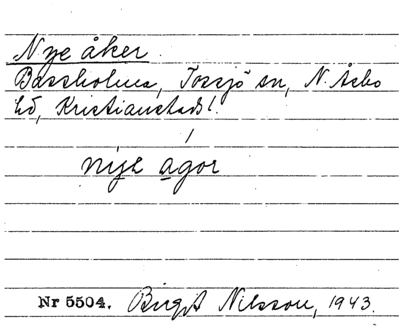 Nye åker
Bassholma, Tossjö sn, N. Åsbo
hd, Kristianstads l.
nye agor
Nr 5504. Birgit Nilsson, 1943.